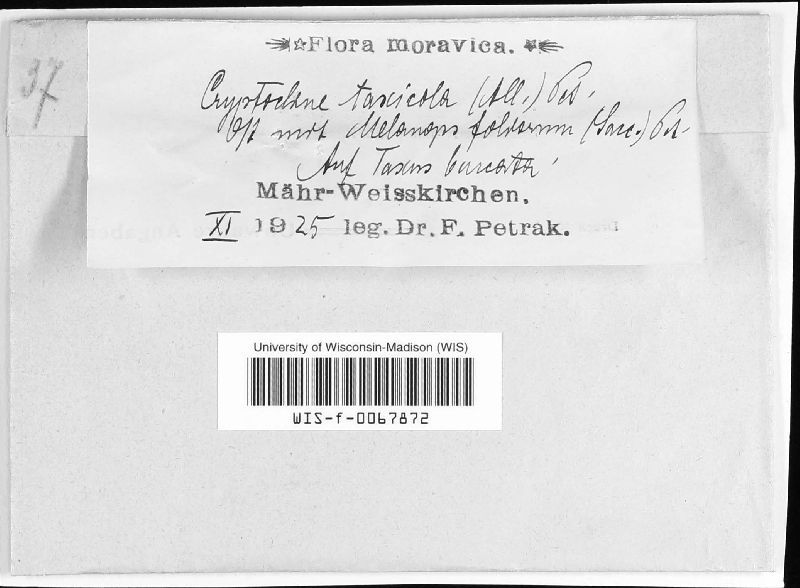 37
Flora moravica.
Cryptocline taxicola (All.) Pet.
Oft mit Melanops foliorum (Sacc.) Pet.
Auf Taxus baccata.
Mähr-Weisskirchen.
XI 1925 leg. Dr. F. Petrak.
University of Wisconsin-Madison (WIS)
WIS-f-0067872